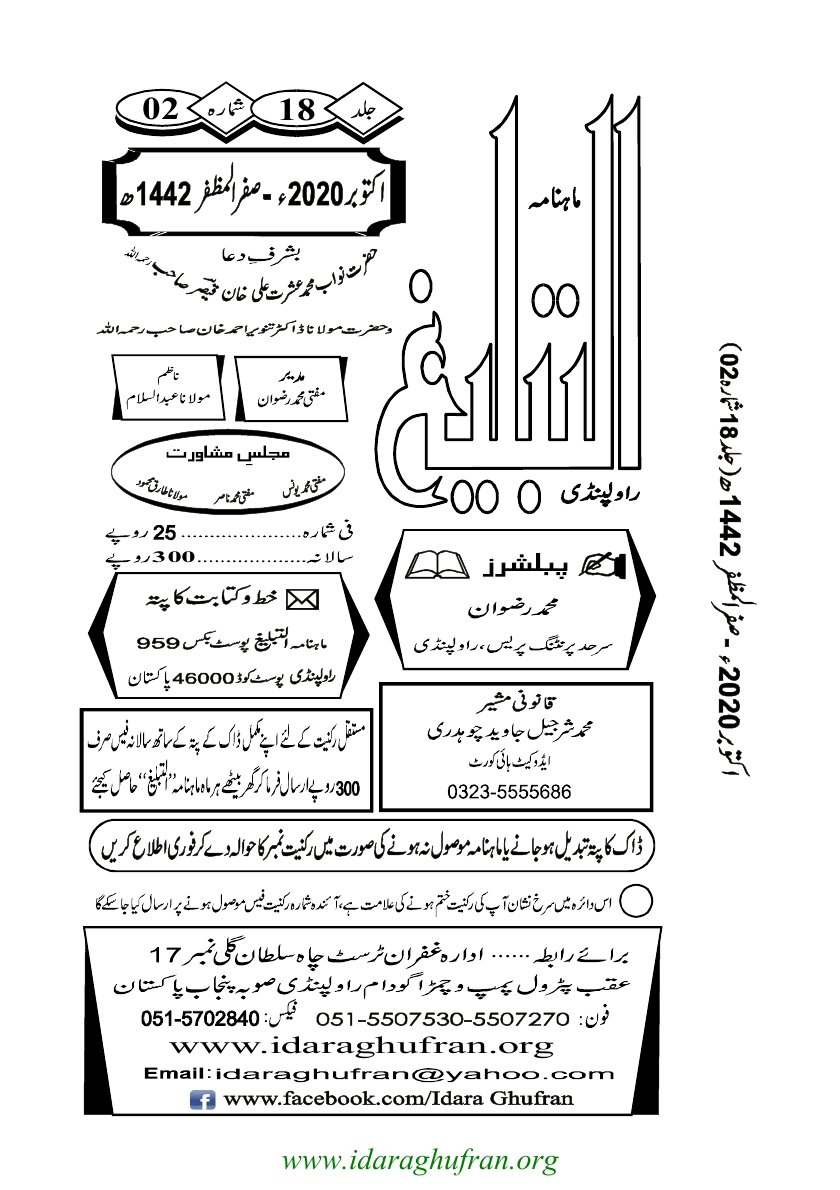 ماہنامہ
التبلیغ
راولپنڈی
جلد 18 شمارہ 02
اکتوبر 2020ء - صفر المظفر 1442ھ
بشرفِ دعا
حضرت نواب محمد عشرت علی خان قیصر صاحب رحمہ اللہ
وحضرت مولانا ڈاکٹر تنویر احمد خان صاحب رحمہ اللہ
مدیر
مفتی محمد رضوان
ناظم
مولانا عبدالسلام
مجلسِ مشاورت
مفتی محمد یونس مفتی محمد ناصر مولانا طارق محمود
فی شمارہ ..................... 25 روپے
سالانہ ..................... 300 روپے
پبلشرز
محمد رضوان
سرحد پرنٹنگ پریس، راولپنڈی
خط و کتابت کا پتہ
ماہنامہ التبلیغ پوسٹ بکس 959
راولپنڈی پوسٹ کوڈ 46000 پاکستان
قانونی مشیر
محمد شرجیل جاوید چوہدری
ایڈوکیٹ ہائی کورٹ
0323-5555686
مستقل رکنیت کے لئے اپنے مکمل ڈاک کے پتہ کے ساتھ سالانہ فیس صرف
300 روپے ارسال فرما کر گھر بیٹھے ہر ماہ ماہنامہ "التبلیغ" حاصل کیجئے
ڈاک کا پتہ تبدیل ہوجانے یا ماہنامہ موصول نہ ہونے کی صورت میں رکنیت نمبر کا حوالہ دے کر فوری اطلاع کریں
اس دائرہ میں سرخ نشان آپ کی رکنیت ختم ہونے کی علامت ہے، آئندہ شمارہ رکنیت فیس موصول ہونے پر ارسال کیا جاسکے گا
برائے رابطہ ...... ادارہ غفران ٹرسٹ چاہ سلطان گلی نمبر 17
عقب پٹرول پمپ و چمڑا گودام راولپنڈی صوبہ پنجاب پاکستان
فون: 051-5507530-5507270 فیکس: 051-5702840
www.idaraghufran.org
Email: idaraghufran@yahoo.com
www.facebook.com/Idara Ghufran
اکتوبر 2020ء - صفر المظفر 1442ھ (جلد 18 شمارہ 02)
www.idaraghufran.org